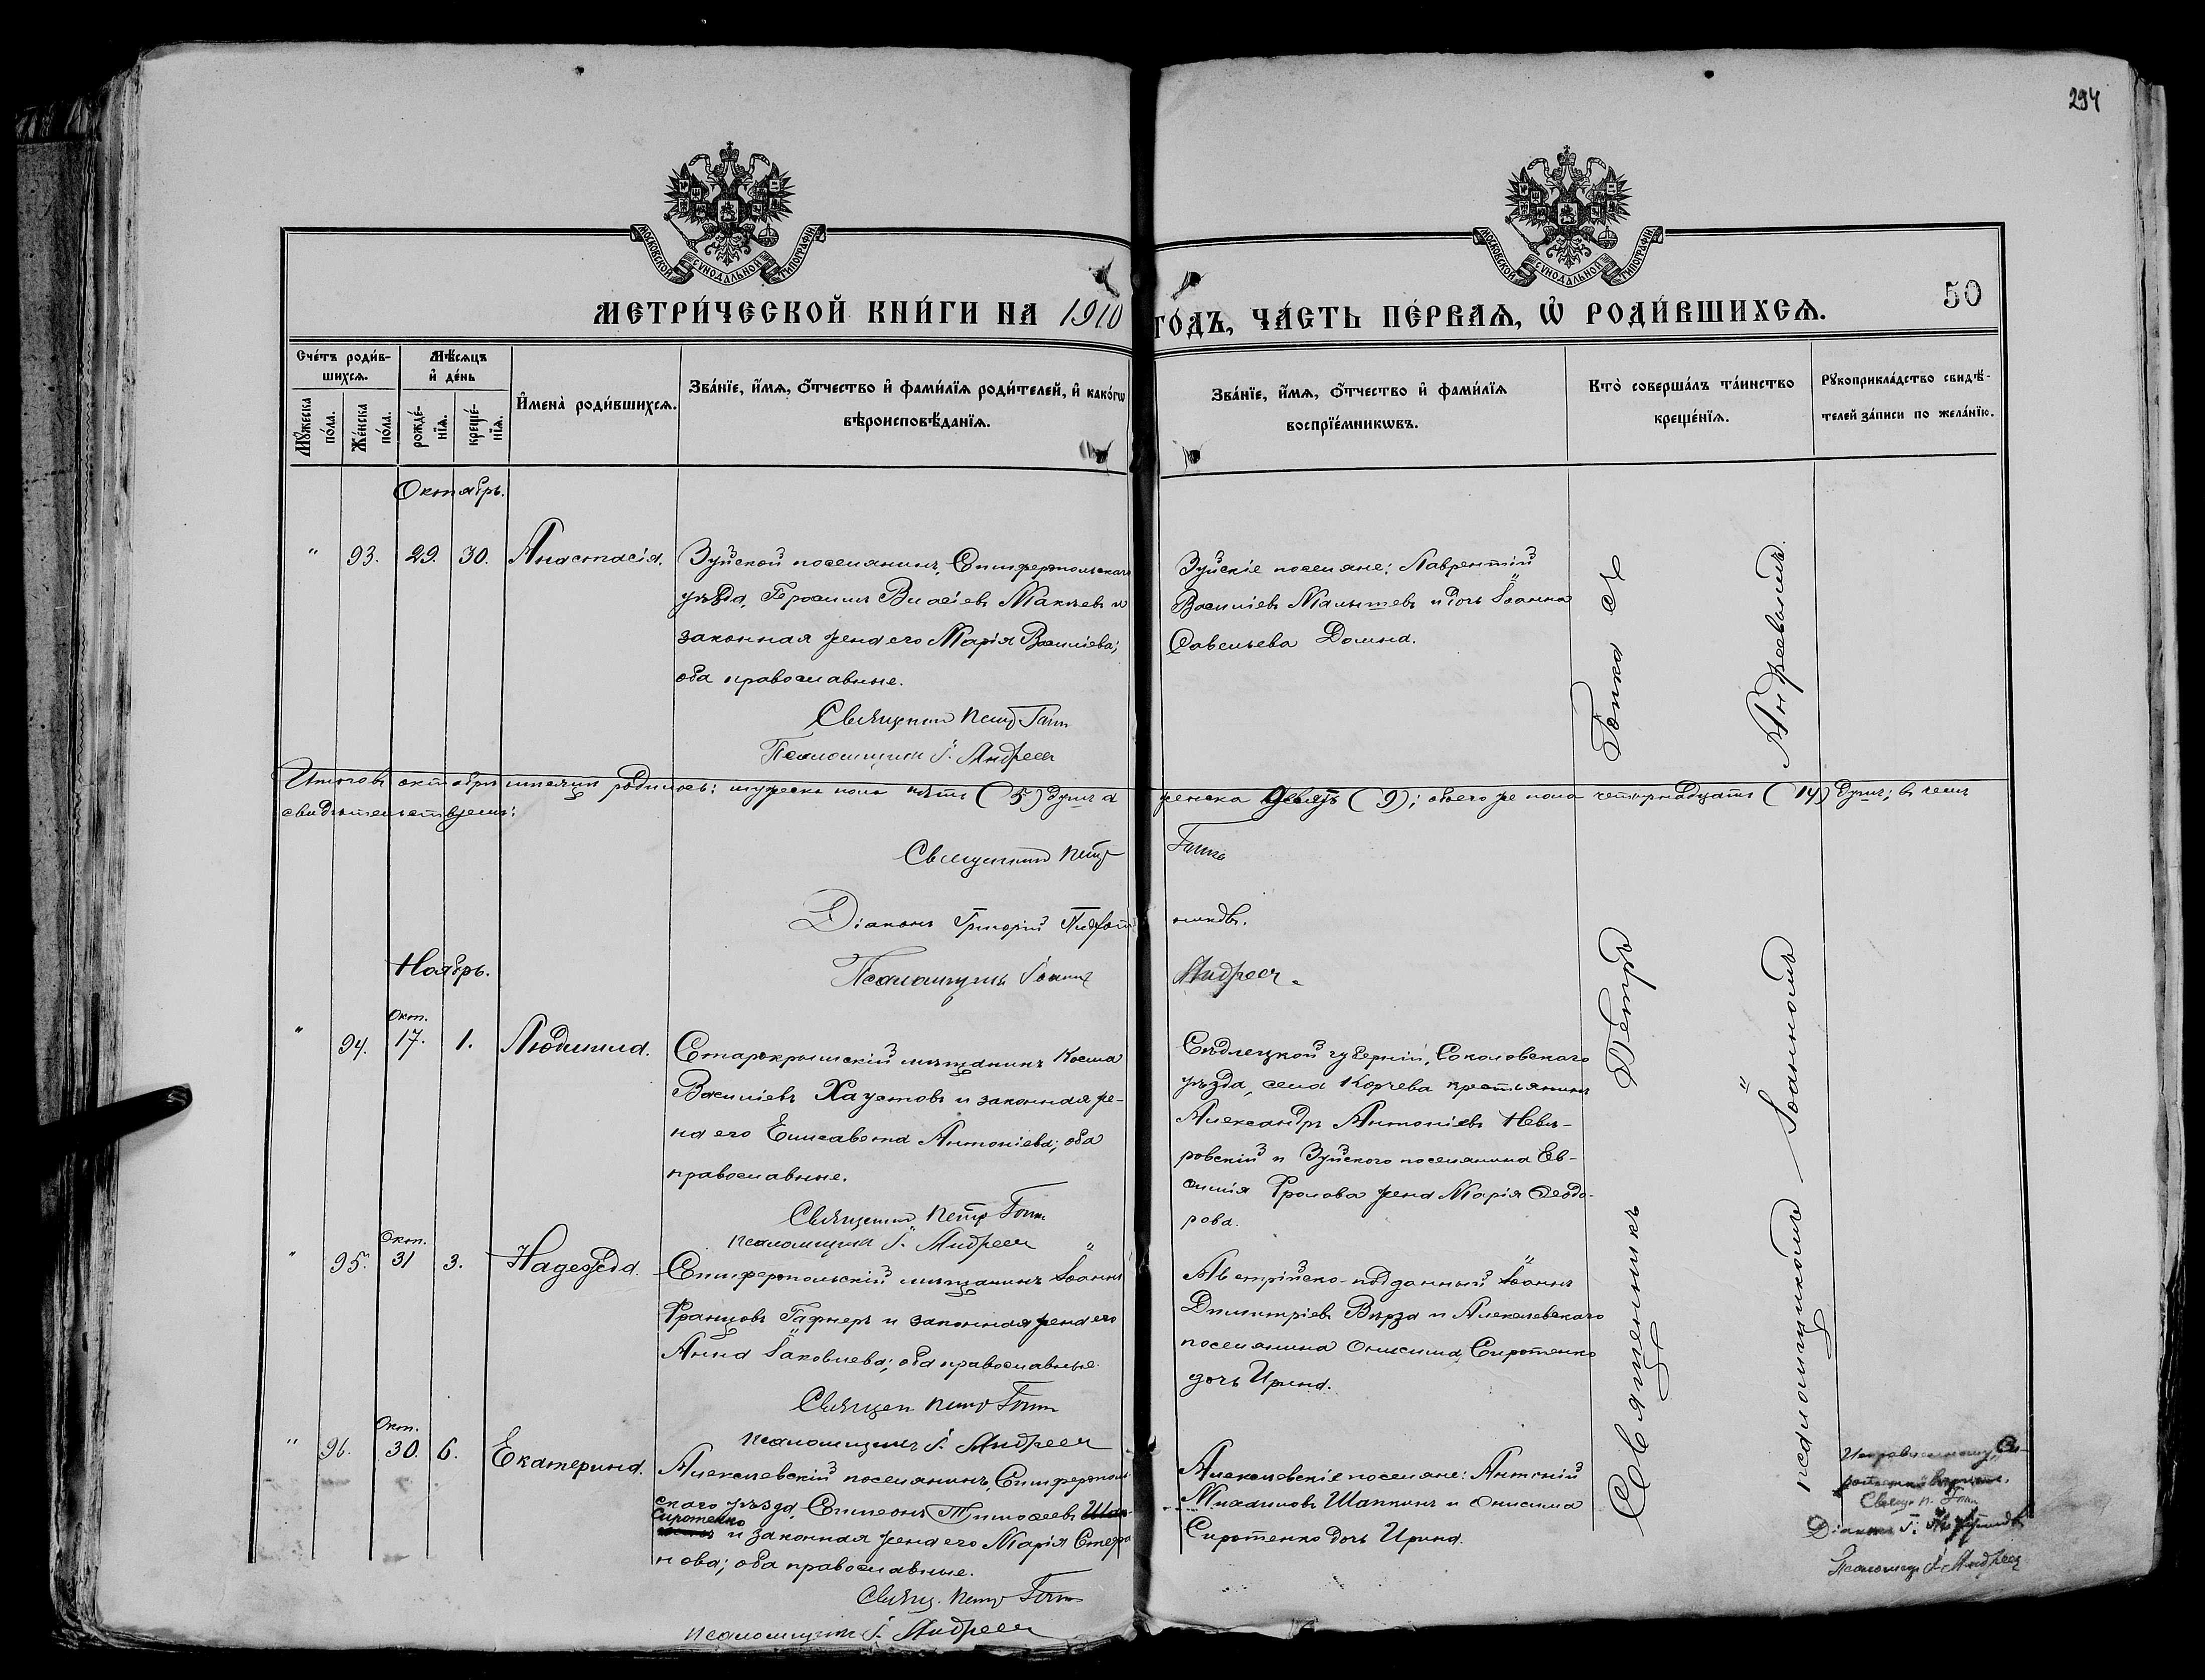 294
МОСКОВСКОЙ СѴНОДАЛЬНОЙ ТИПОГРАФІИ
МОСКОВСКОЙ СѴНОДАЛЬНОЙ ТИПОГРАФІИ
МЕТРИ́ЧЕСКОЙ КНИ́ГИ НА 1910
ГО́ДЪ, ЧА́СТЬ ПЕ́РВАѦ, Ѡ҆ РОДИ́ВШИХСѦ.
50
Сче́тъ роди́в-
шихсѧ.
Мꙋ́жеска по́ла.
Же́нска по́ла.
Мѣ́сѧцъ
и҆ де́нь
рожде́-
нїѧ.
креще́-
нїѧ.
И҆мена̀ роди́вшихсѧ.
Зва́нїе, и҆́мѧ, ѻ҆́тчество и҆ фами́лїѧ роди́телей, и҆ како́гѡ
вѣроисповѣ́данїѧ.
Зва́нїе, и҆́мѧ, ѻ҆́тчество и҆ фами́лїѧ
воспрїе́мникѡвъ.
Кто̀ соверша́лъ та́инство
креще́нїѧ.
Рꙋкоприкла́дство свидѣ́-
телей за́писи по жела́нїю.
Октябрь.
" 93. 29. 30. Анастасія.
Зуйской поселянинъ, Симферопольскаго
уѣзда, Герасимъ Власіевъ Макѣевъ и
законная жена его Марія Василіева;
оба православные.
Священникъ Петръ
Псаломщикъ І. Андреев
Зуйскіе поселяне: Лаврентій
Василіевъ Малышевъ и дочь Іоанна
Савельева Домна.
Итого въ октябрѣ мѣсяцѣ родилось: мужеска пола пять (5) душъ а
женска девять (9); обоего же пола четырнадцать (14) душъ; въ чемъ
свидѣтельствуемъ:
Священникъ Петръ
Діаконъ Григорій
Псаломщикъ Іоаннъ
Андреев
Ноябрь.
" 94. Окт. 17. 1. Людмила.
Старокрымскій мѣщанинъ Косма
Василіевъ Хаустовъ и законная же-
на его Елисавета Антоніева; оба
православные.
Священникъ Петръ
Псаломщикъ І. Андреев
Сѣдлецкой губерніи, Соколовскаго
уѣзда, села Корчева крестьянинъ
Александръ Антоніевъ Невѣ-
ровскій и Зуйского поселянина Ев-
симія Фролова жена Марія Ѳеодо-
рова.
" 95. Окт. 31 3. Надежда.
Симферопольскій мѣщанинъ Іоаннъ
Францовъ Гафнеръ и законная жена его
Анна Іаковлева; оба православные.
Священ. Петръ
Псаломщикъ І. Андреев
Австрійско-подданный Іоаннъ
Димитріевъ Вѣрза и Алексѣевскаго
поселянина Онисима Сиротенко
дочь Ирина.
" 96. Окт. 30. 6. Екатерина.
Алексѣевскій поселянинъ, Симферополь-
скаго уѣзда, Симеонъ Тимоѳеевъ
Сиротенко
и законная жена его Марія Стефа
нова; оба православные.
Свящ. Петръ
Псаломщикъ І. Андреев
Алексѣевскіе поселяне: Антоній
Михаиловъ Шапкинъ и Онисима
Сиротенко дочь Ирина.
Священникъ Петръ
псаломщикомъ Іоанномъ
Андреевымъ.
Діаконъ Г.
Псаломщ. І. Андреев